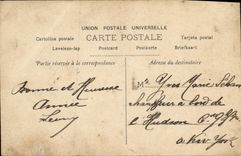 UNION POSTALE UNIVERSELLE
CARTE POSTALE
Cartolina postale
Tarjeta postal
Levelezo-lap
Postcard
Postkarte
Briefkaart
Partie réservée à la correspondance
Adresse du destinataire
Bonne et Heureuse
Année
Yves Marie
chauffeur à bord de
l'Hudson
à New York